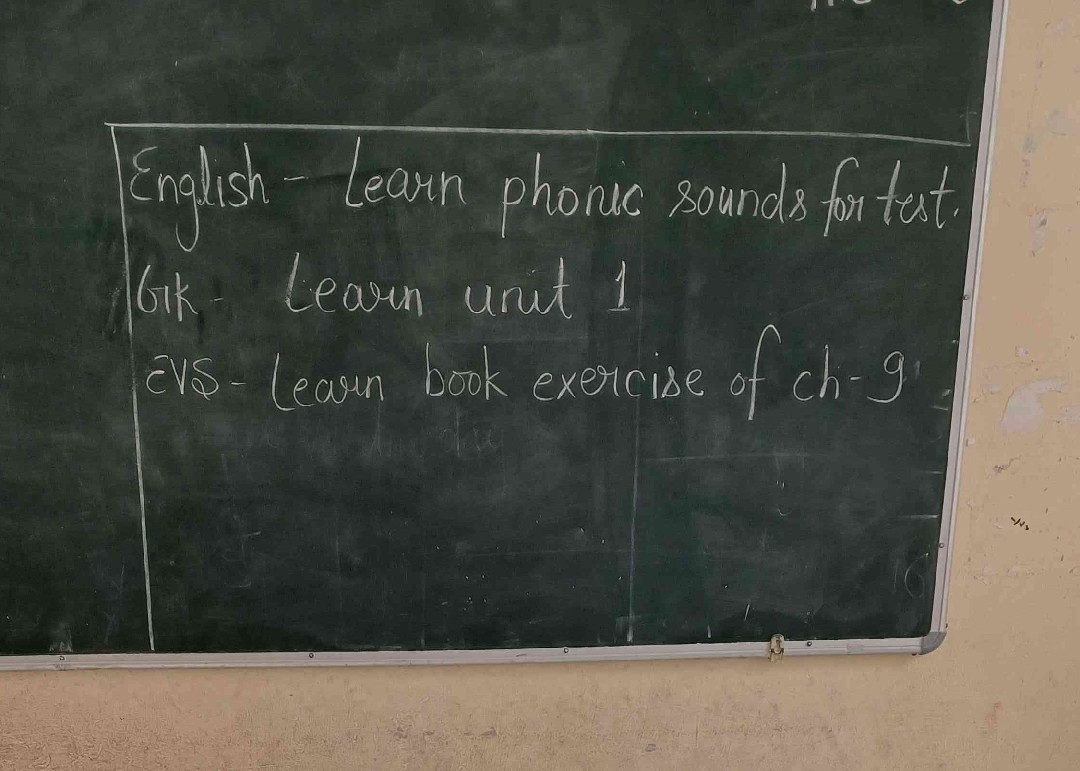 English - Learn phonic sounds for test.
GK - Learn unit 1
EVS - Learn book exercise of ch-9